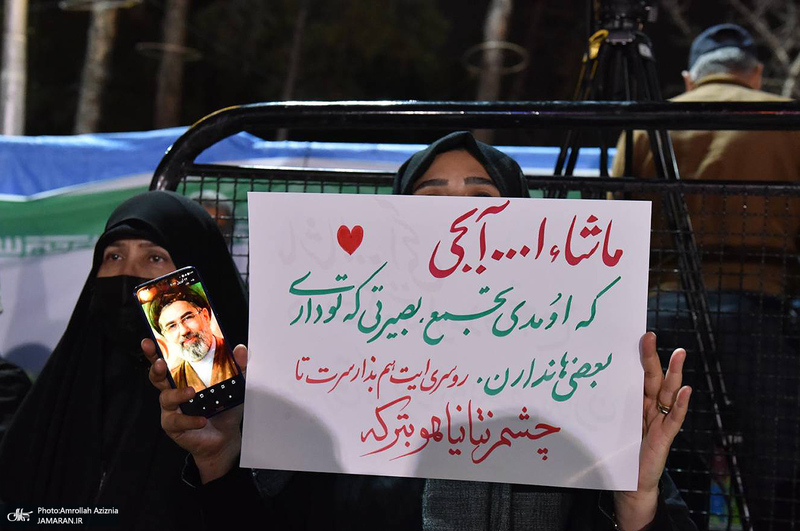 ماشاءا... آبجی
که اومدی تجمع. بصیرتی که تو داری
بعضی ها ندارن. روسری ایت هم بذار سرت تا
چشم نتانیاهو بترکه
Photo:Amrollah Aziznia
JAMARAN.IR